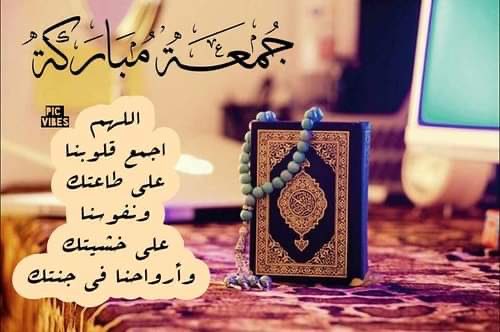 جُمعَةٌ مُبَارَكَةٌ
PIC
VIBES
اللهم
اجمع قلوبنا
على طاعتك
ونفوسنا
على خشيتك
وأرواحنا في جنتك